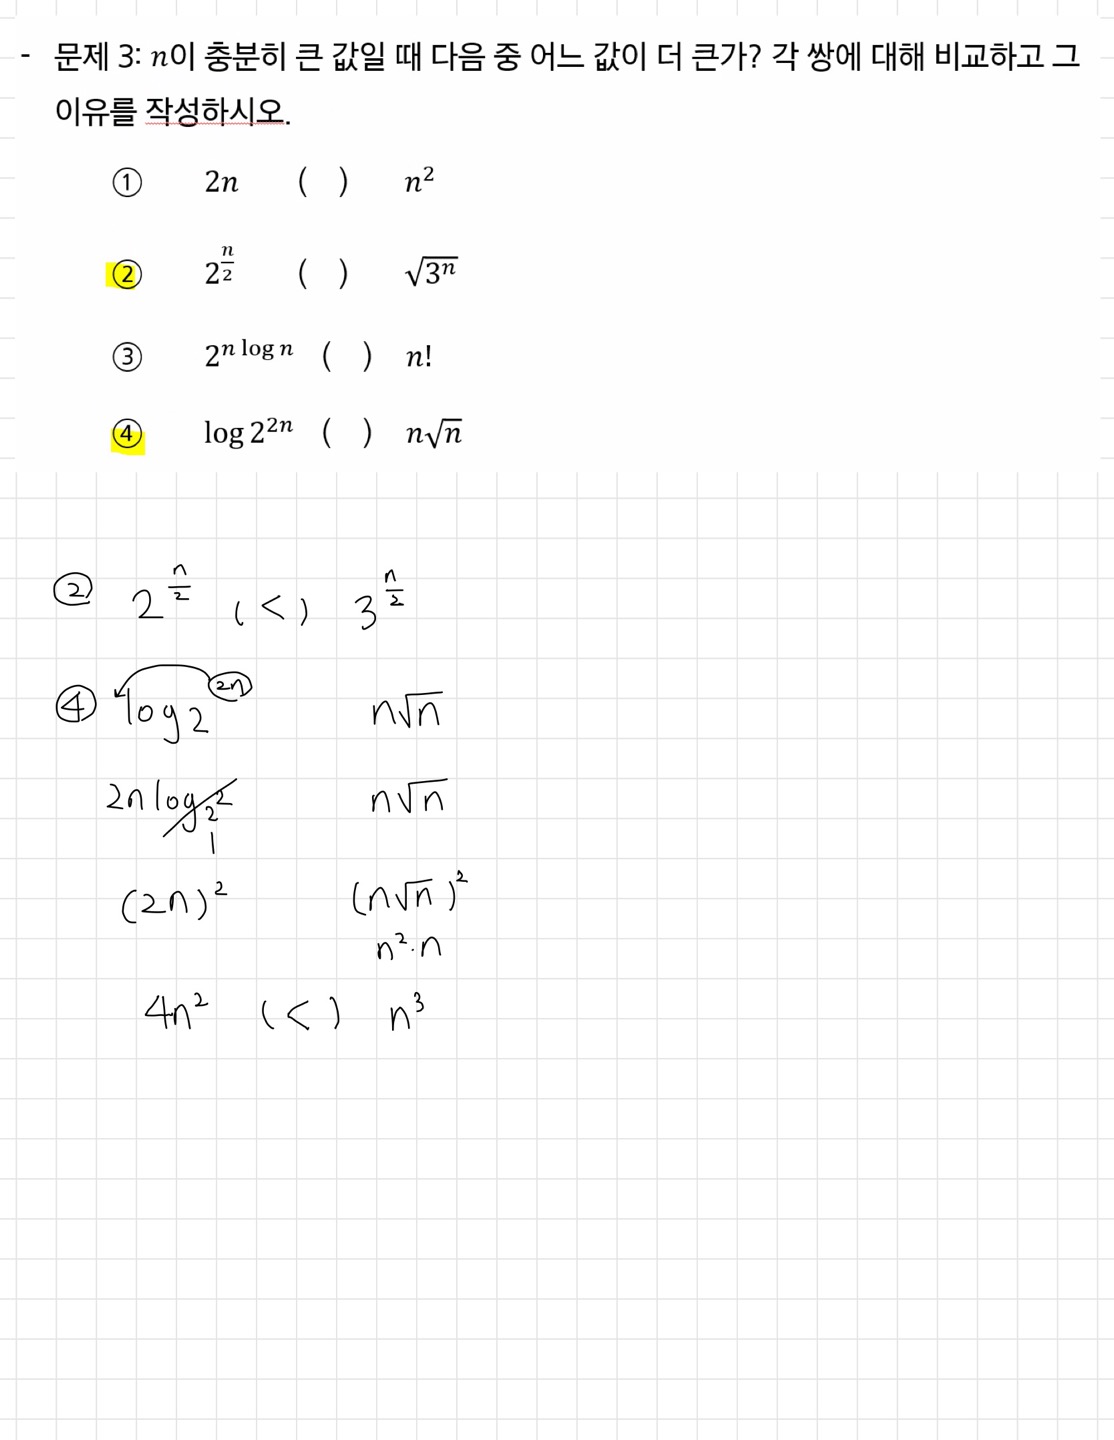 - 문제 3: n이 충분히 큰 값일 때 다음 중 어느 값이 더 큰가? 각 쌍에 대해 비교하고 그
이유를 작성하시오.
① 2n ( ) n²
② 2^{n/2} ( ) √(3ⁿ)
③ 2^{n log n} ( ) n!
④ log 2^{2n} ( ) n√n
② 2^{n/2} (<) 3^{n/2}
④ log 2^{2n} n√n
2n log₂2 n√n
1
(2n)² (n√n)²
n²·n
4n² (<) n³